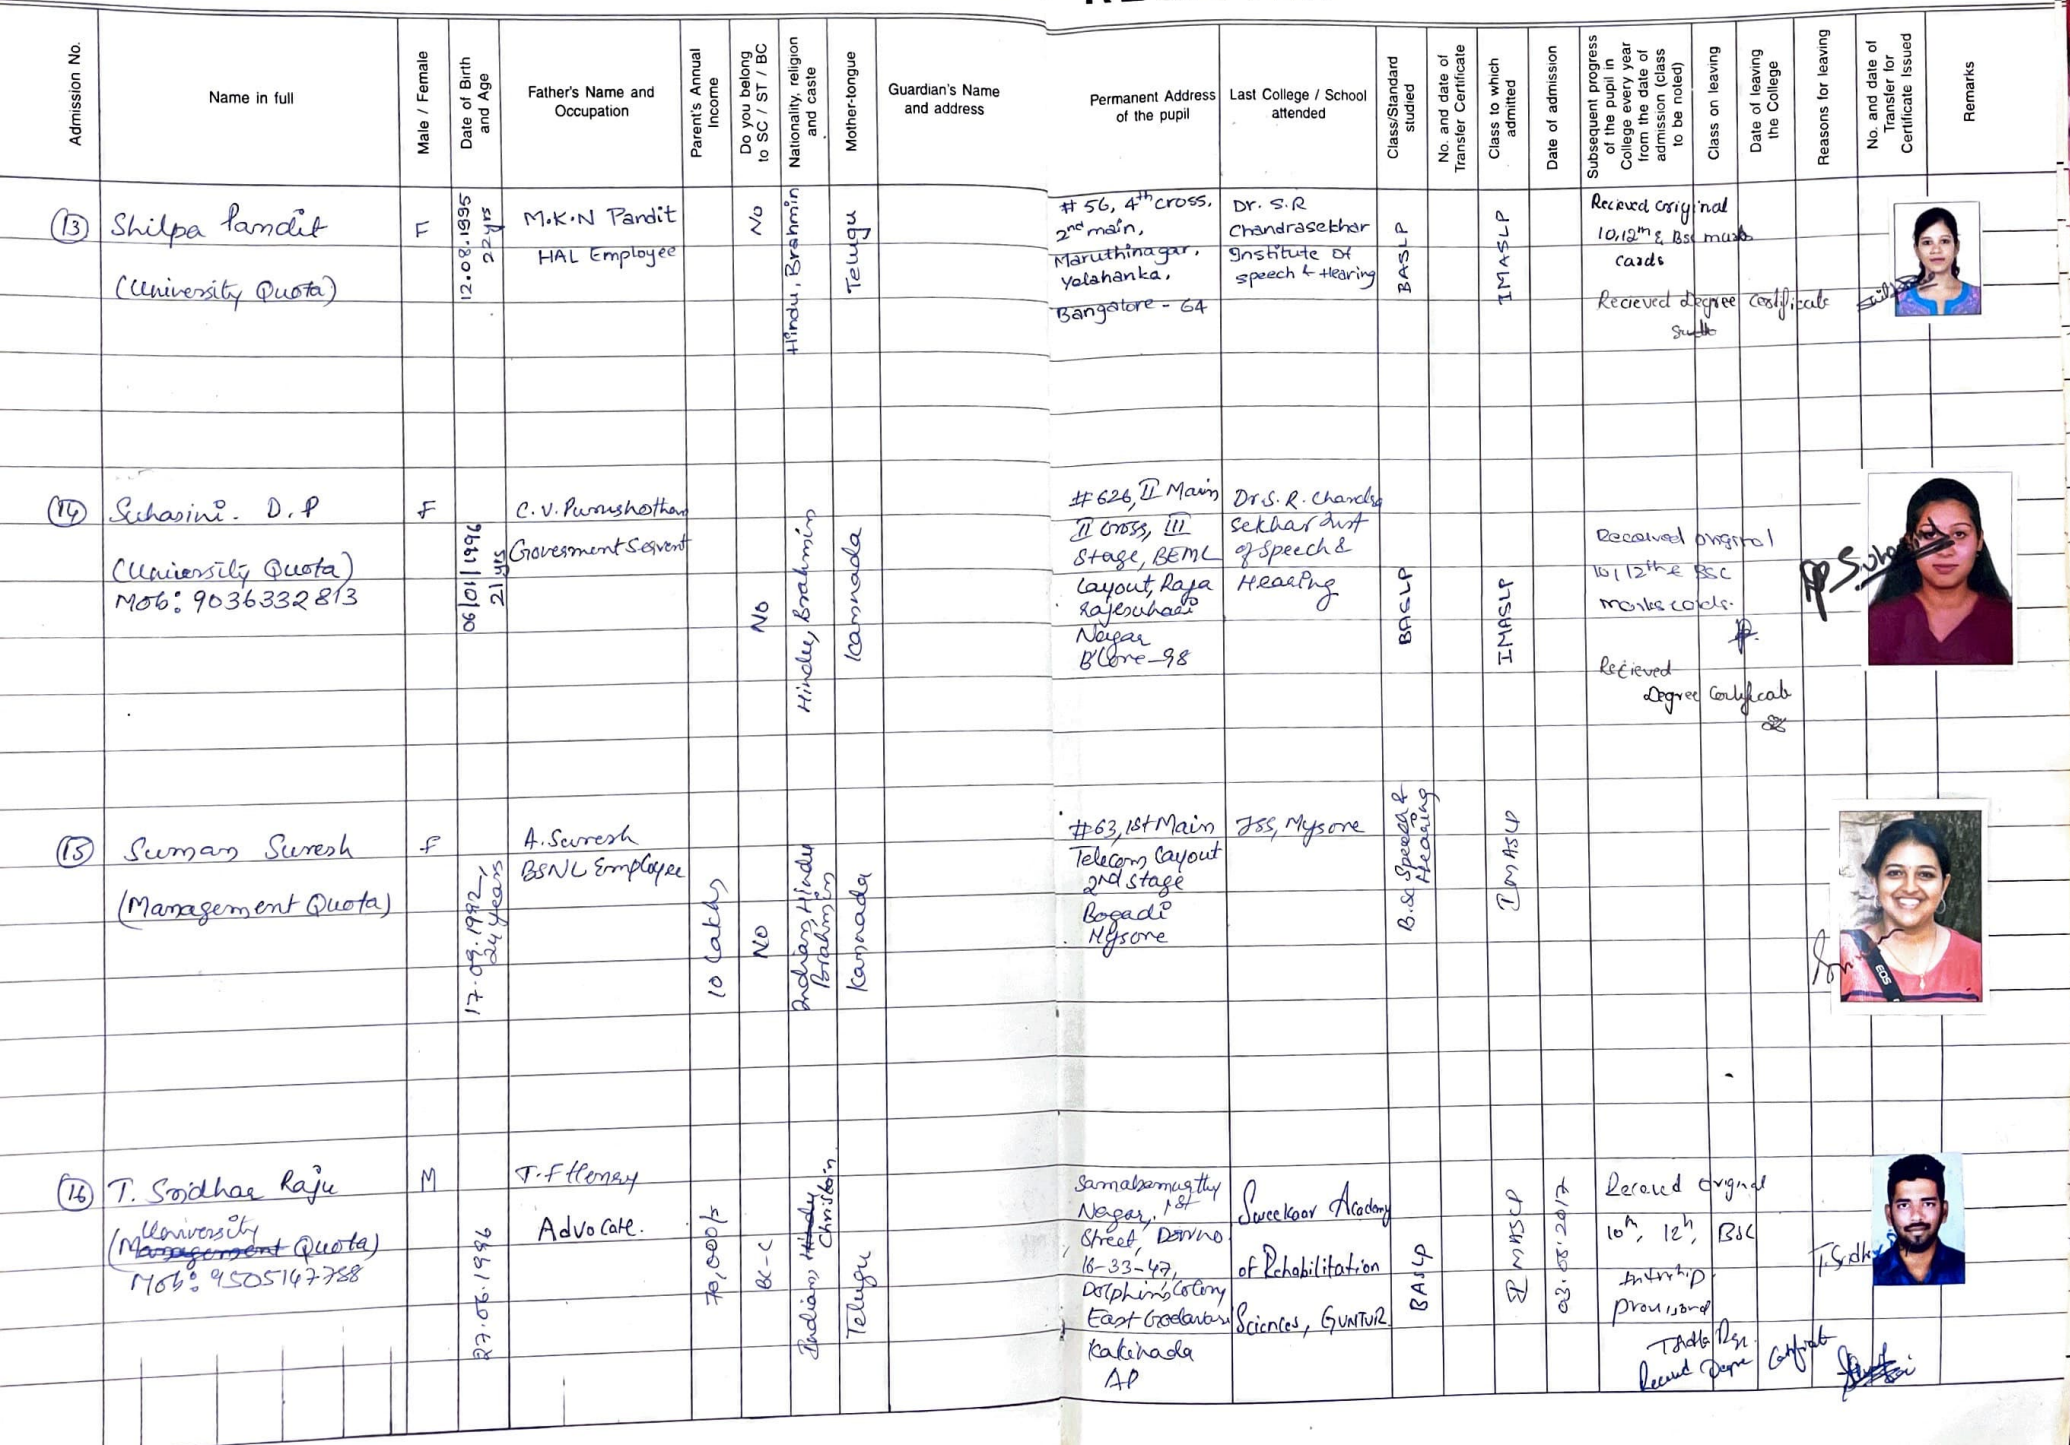 Admission No.
Name in full
Male / Female
Date of Birth
and Age
Father's Name and
Occupation
Parent's Annual
Income
Do you belong
to SC / ST / BC
Nationality, religion
and caste
Mother-tongue
Guardian's Name
and address
Permanent Address
of the pupil
Last College / School
attended
Class/Standard
studied
No. and date of
Transfer Certificate
Class to which
admitted
Date of admission
Subsequent progress
of the pupil in
College every year
from the date of
admission (class
to be noted)
Class on leaving
Date of leaving
the College
Reasons for leaving
No. and date of
Transfer for
Certificate Issued
Remarks
13
Shilpa Pandit
(University Quota)
F
12.08.1995
22yrs
M.K.N Pandit
HAL Employee
No
Hindu, Brahmin
Telugu
# 56, 4th cross,
2nd main,
Maruthinagar,
Yelahanka,
Bangalore - 64
Dr. S.R
Chandrasekhar
Institute of
speech & Hearing
BASLP
IMASLP
Recieved original
10,12th & BSc marks
cards
Recieved degree certificate
14
Suhasini. D.P
(University Quota)
Mob: 9036332813
F
06/01/1996
21yrs
C.V. Purushotham
Government Servent
No
Hindu, Brahmin
Kannada
#626, II Main
II cross, III
Stage, BEML
Layout, Raja
Rajeshwari
Nagar
B'lore-98
Dr.S.R. Chandra
sekhar Inst
of Speech &
Hearing
BASLP
IMASLP
Received original
10,12th & BSC
marks cards.
Recieved
Degree Certificate
15
Suman Suresh
(Management Quota)
F
17.09.1992,
24 years
A. Suresh
BSNL Employee
10 Lakhs
No
Indian, Hindu
Brahmin
Kannada
#63, 1st Main
Telecom Layout
2nd Stage
Bogadi
Mysore
JSS, Mysore
B.Sc Speech &
Hearing
I MASLP
EOS
16
T. Sridhar Raju
University
(Management Quota)
Mob: 9505147788
M
27.06.1996
T.F Henry
Advocate.
70,000/-
BC-C
Indian, Hindu
Christian
Telugu
Samalamurthy
Nagar, 1st
Street, Dorrno
16-33-47,
Dolphin's Colony
East Godavari
Kakinada
AP
Sweekaar Academy
of Rehabilitation
Sciences, GUNTUR.
BASLP
I MASLP
03.08.2017
Received original
10th, 12th, BSC
Intership
provisional
Received Degree Certificate